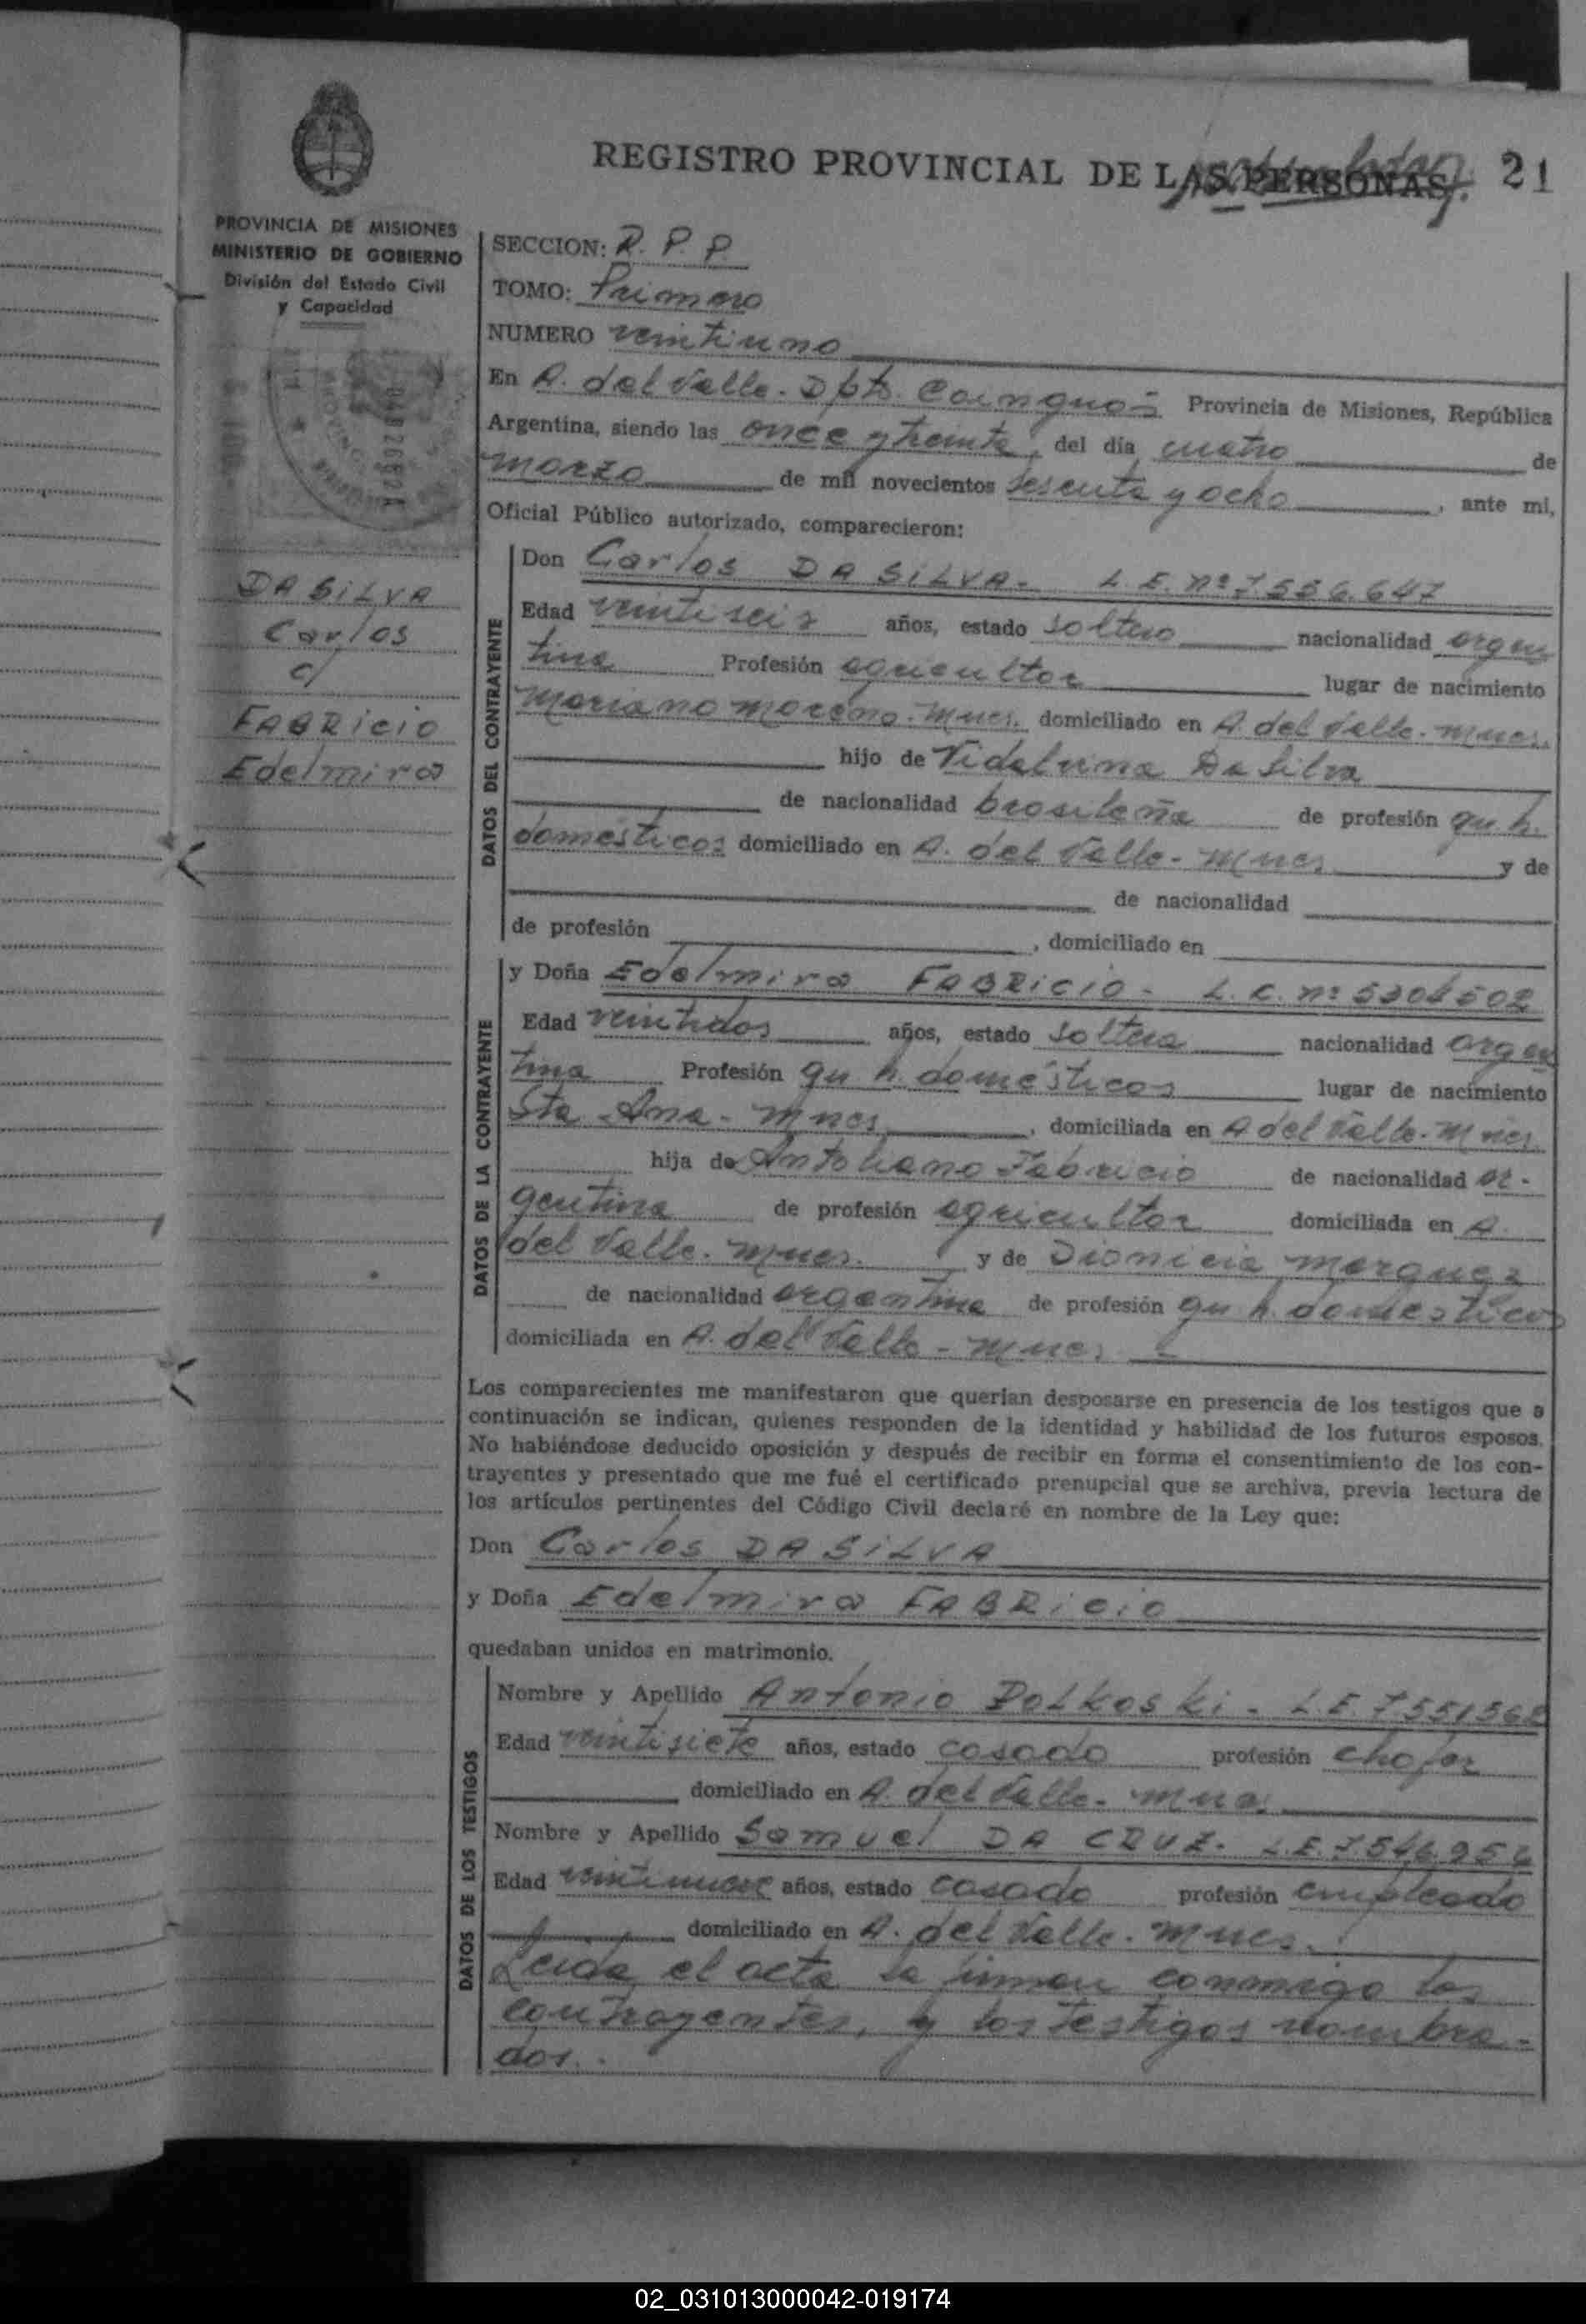 REGISTRO PROVINCIAL DE LAS PERSONAS. 21
PROVINCIA DE MISIONES
MINISTERIO DE GOBIERNO
División del Estado Civil
y Capacidad
DA SILVA
Carlos
c/
FABRICIO
Edelmira
SECCION: R. P. P.
TOMO: Primero
NUMERO veintiuno
En A. del Valle. Dpto. Cainguás Provincia de Misiones, República
Argentina, siendo las once y treinta, del día cuatro de
marzo de mil novecientos sesenta y ocho, ante mi,
Oficial Público autorizado, comparecieron:
DATOS DEL CONTRAYENTE
Don Carlos DA SILVA. L. E. nº 7.556.647
Edad veintiseis años, estado soltero nacionalidad argen
tina Profesión agricultor lugar de nacimiento
Mariano Moreno. Mnes. domiciliado en A. del Valle. Mnes.
hijo de Vidalvina Da Silva
de nacionalidad brasileña de profesión qu. h.
domésticos domiciliado en A. del Valle. Mnes y de
de nacionalidad
de profesión , domiciliado en
DATOS DE LA CONTRAYENTE
y Doña Edelmira FABRICIO. L. C. nº
Edad veintidos años, estado soltera nacionalidad argen
tina Profesión qu h. domésticos lugar de nacimiento
Sta Ana. Mnes, domiciliada en A del Valle. Mnes.
hija de Antoliano Fabricio de nacionalidad ar-
gentina de profesión agricultor domiciliada en A.
del Valle. Mnes. y de Dionicia Marquez
de nacionalidad argentina de profesión qu h. domesticos
domiciliada en A. del Valle. Mnes
Los comparecientes me manifestaron que querían desposarse en presencia de los testigos que a
continuación se indican, quienes responden de la identidad y habilidad de los futuros esposos.
No habiéndose deducido oposición y después de recibir en forma el consentimiento de los con-
trayentes y presentado que me fué el certificado prenupcial que se archiva, previa lectura de
los artículos pertinentes del Código Civil declaré en nombre de la Ley que:
Don Carlos DA SILVA
y Doña Edelmira FABRICIO
quedaban unidos en matrimonio.
DATOS DE LOS TESTIGOS
Nombre y Apellido Antonio POLKOSKi. L.E. 7551568
Edad veintisiete años, estado casado profesión chofer
domiciliado en A. del Valle. Mnes.
Nombre y Apellido Samuel DA CRUZ. L.E. 7.546.954
Edad veintinueve años, estado casado profesión empleado
domiciliado en A. del Valle. Mnes.
Leida el acta la firman conmigo los
contrayentes, y los testigos nombra-
dos.
02_031013000042-019174